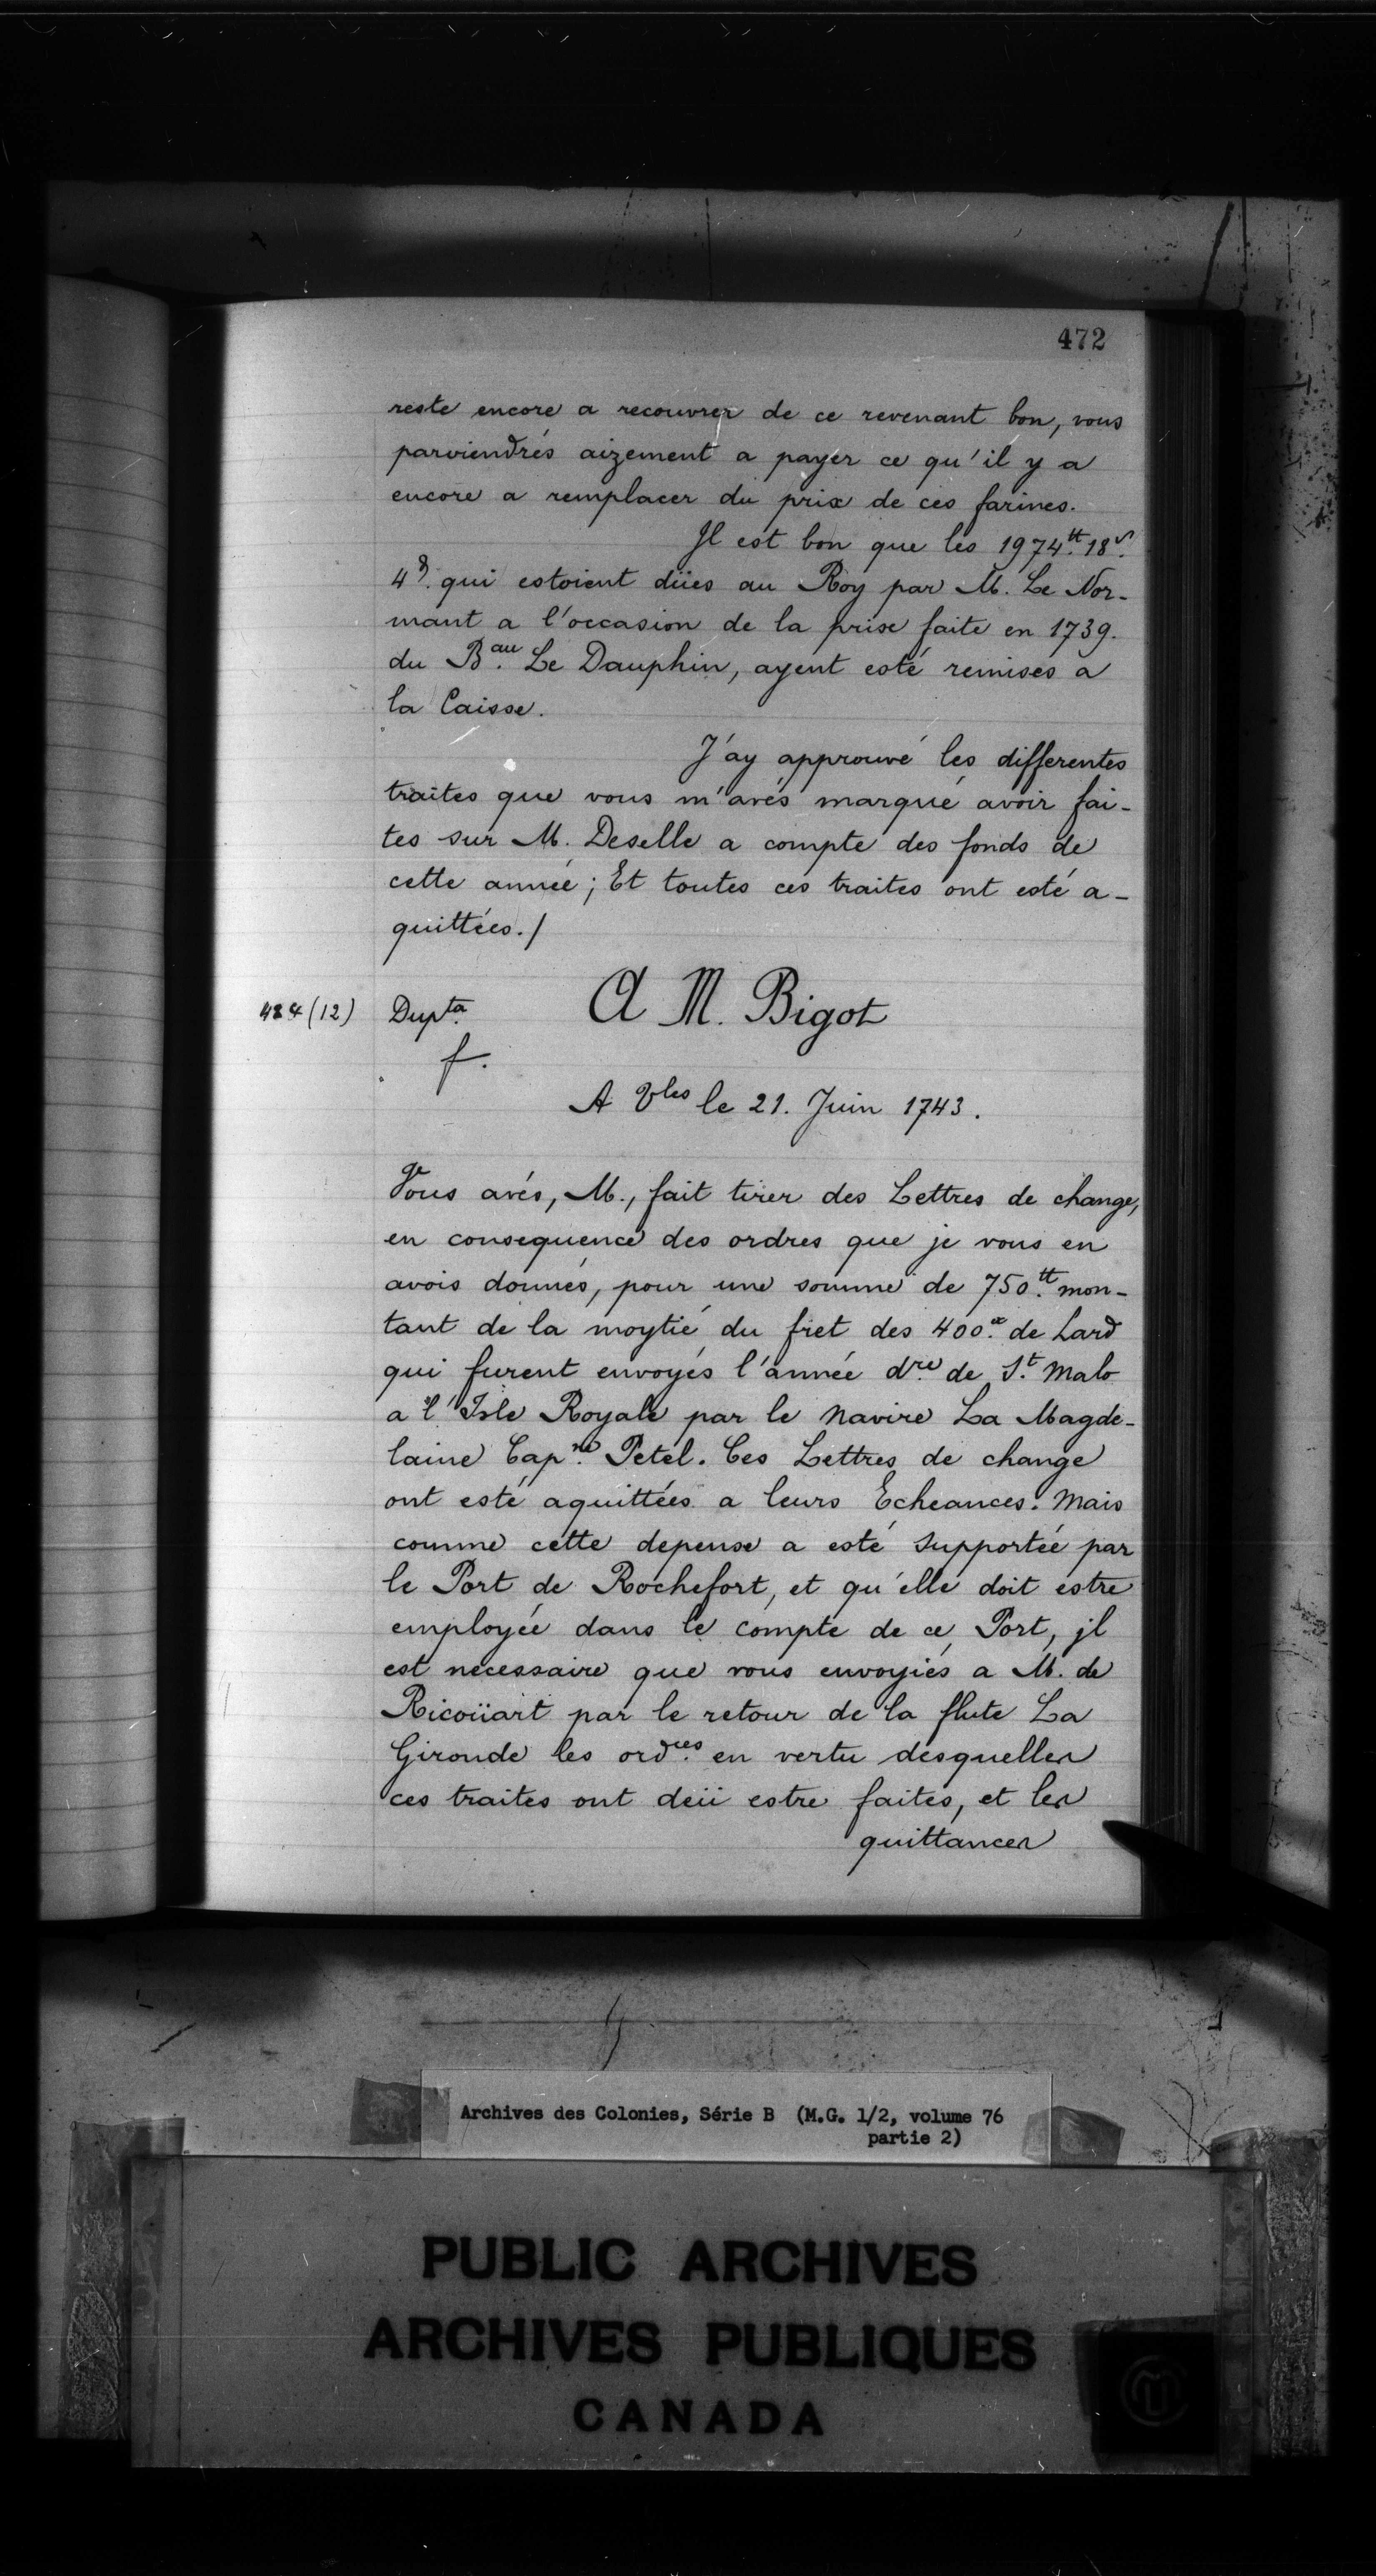 472
reste encore a recouvrer de ce revenant bon, vous
parviendrés aizement a payer ce qu'il y a
encore a remplacer du prix de ces farines.
Jl est bon que les 1974.tt 18.s
4.d qui estoient düies au Roy par M. Le Nor-
mant a l'occasion de la prise faite en 1739.
du B.au Le Dauphin, ayent esté remises a
la Caisse.
J'ay approuvé les differentes
traites que vous m'avés marqué avoir fai-
tes sur M. Deselle a compte des fonds de
cette année; Et toutes ces traites ont esté a-
quittées./
A M. Bigot
484 (12) Dup.ta
f.
A Vles le 21. Juin 1743.
Vous avés, M., fait tirer des Lettres de change,
en consequence des ordres que je vous en
avois donnés, pour une somme de 750.tt mon-
tant de la moytié du fret des 400.x de Lard
qui furent envoyés l'année d.re de S.t Malo
a l'Isle Royale par le Navire La Magde-
laine Cap.ne Petel. Ces Lettres de change
ont esté aquittées a leurs Echeances. Mais
comme cette depense a esté supportée par
le Port de Rochefort, et qu'elle doit estre
employée dans le compte de ce Port, jl
est necessaire que vous envoyiés a M. de
Ricoüart par le retour de la flute La
Gironde les ord.ces en vertu desquelles
ces traites ont deü estre faites, et les
quittances
Archives des Colonies, Série B (M.G. 1/2, volume 76
partie 2)
PUBLIC ARCHIVES
ARCHIVES PUBLIQUES
CANADA